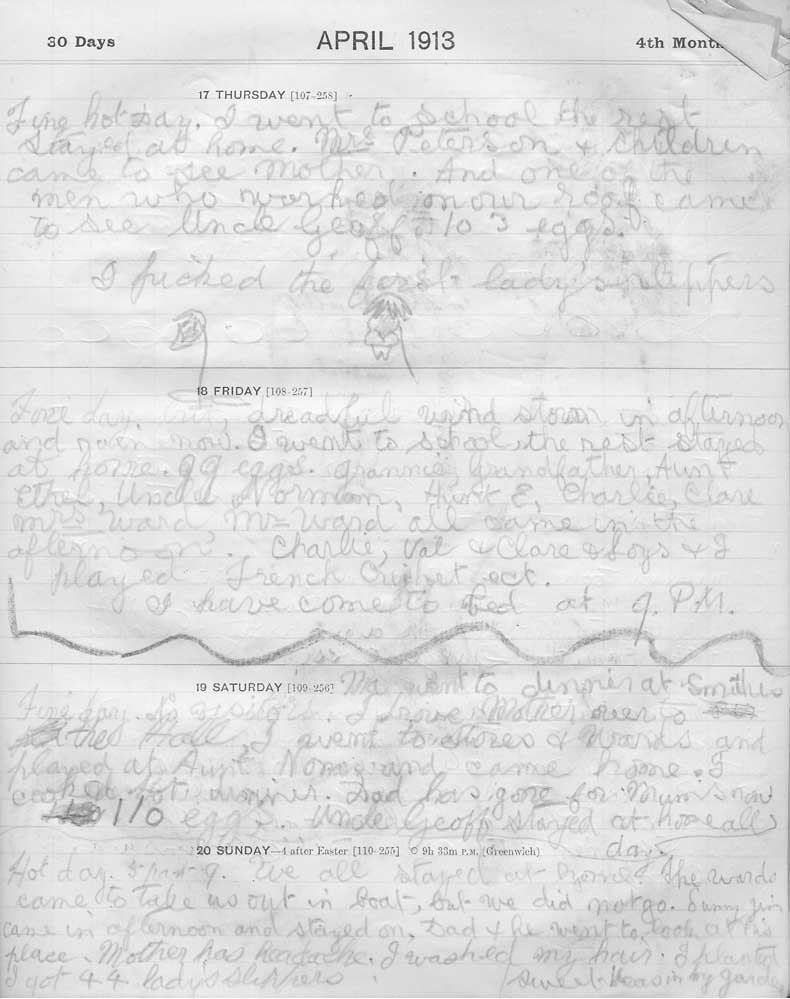 30 Days APRIL 1913 4th Month
17 THURSDAY [107-258]
Fine hot day. I went to school the rest
stayed at home. Mrs Peterson & children
came to see Mother. And one of the
men who worked on our roof came
to see Uncle Geoff 103 eggs.
I picked the first lady's slippers
18 FRIDAY [108-257]
Fine day but, dreadful wind storm in afternoon
and rain now. I went to school the rest stayed
at home. 99 eggs. Grannie, Grandfather, Aunt
Ethel, Uncle Norman, Aunt E, Charlie, Clare
Mrs Ward Mr Ward all came in the
afternoon. Charlie, Val & Clare & boys & I
played French Cricket ect.
I have come to bed at 9. P.M.
19 SATURDAY [109-256] We went to dinner at Smiths
Fine day. visitors. I drove Mother over to
the Hall, I went to stores & Wards and
played at Aunt Nona and came home. I
cooked hot dinner. Dad has gone for Mum now
110 eggs. Uncle Geoff stayed at home all
day.
20 SUNDAY—4 after Easter [110-255] 9h 33m P.M. (Greenwich)
Hot day. 5 past 9. We all stayed at home. The Wards
came to take us out in boat, but we did not go. Sunny Jim
came in afternoon and stayed on, Dad & he went to look at his
place. Mother has headache. I washed my hair. I planted
I got 44 lady's slippers sweet peas in my garden